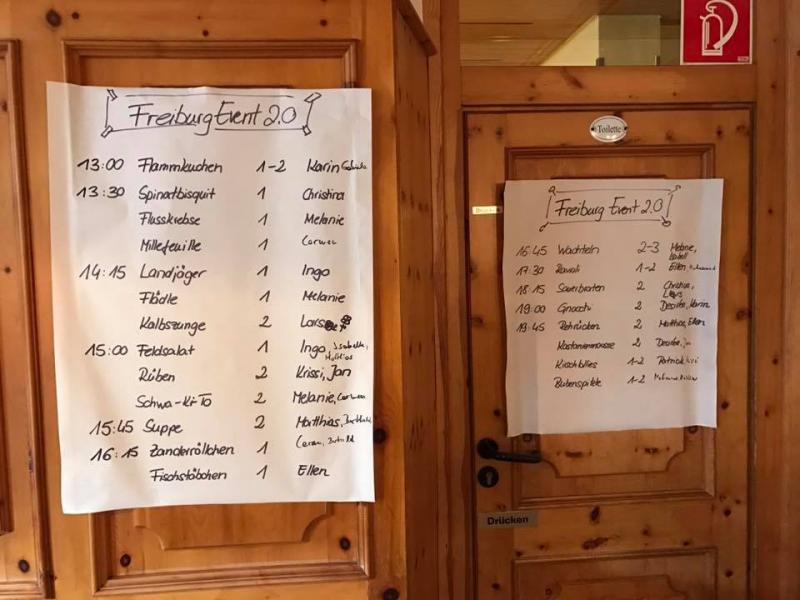 Freiburg Event 2.0
13:00 Flammkuchen 1-2 Karin
13:30 Spinatbisquit 1 Christina
Flusskrebse 1 Melanie
Millefeuille 1 Carmen
14:15 Landjäger 1 Ingo
Flädle 1 Melanie
Kalbszunge 2 Lars
15:00 Feldsalat 1 Ingo, Isabella,
Rüben 2 Krissi, Jan
Schwa-Ki-To 2 Melanie, Carmen
15:45 Suppe 2 Matthias,
16:15 Zanderröllchen 1
Fischstäbchen 1 Ellen
Toilette
Freiburg Event 2.0
16:45 Wachteln 2-3
17:30 Ravioli 1-2 Ellen
18:15 Sauerbraten 2 Christina,
19:00 Gnocchi 2 Desirée, Karin
19:45 Rehrücken 2 Matthias, Ellen
Kastanienmousse 2 Desirée, Jan
Kirschblies 1-2 Patrick
Bubenspitzle 1-2
Drücken